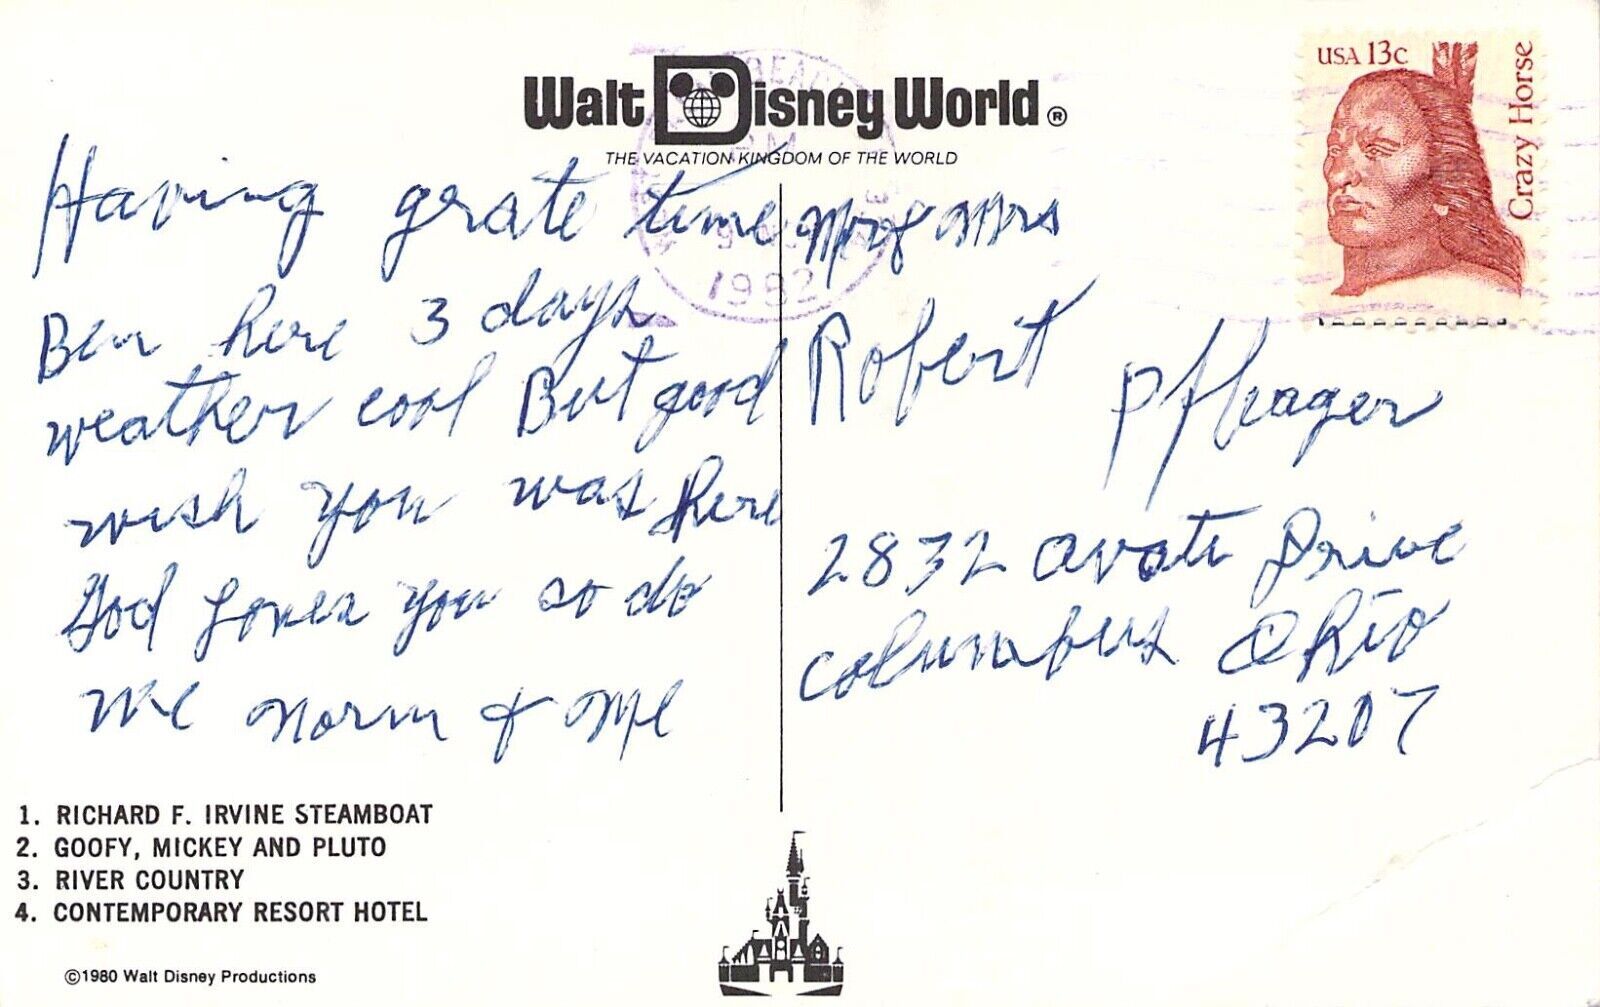 Walt Disney World ®
THE VACATION KINGDOM OF THE WORLD
USA 13c
Crazy Horse
1982
Having grate time
Ben here 3 days
weather cool But good
wish you was here
God loves you so do
we Norm & Me
Mr & Mrs
Robert Pfleager
2832 Drive
Columbus Ohio
43207
1. RICHARD F. IRVINE STEAMBOAT
2. GOOFY, MICKEY AND PLUTO
3. RIVER COUNTRY
4. CONTEMPORARY RESORT HOTEL
©1980 Walt Disney Productions